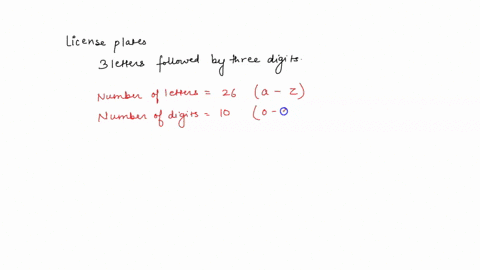 License plates
3 letters followed by three digits.
Number of letters = 26 (a - z)
Number of digits = 10 (0 -